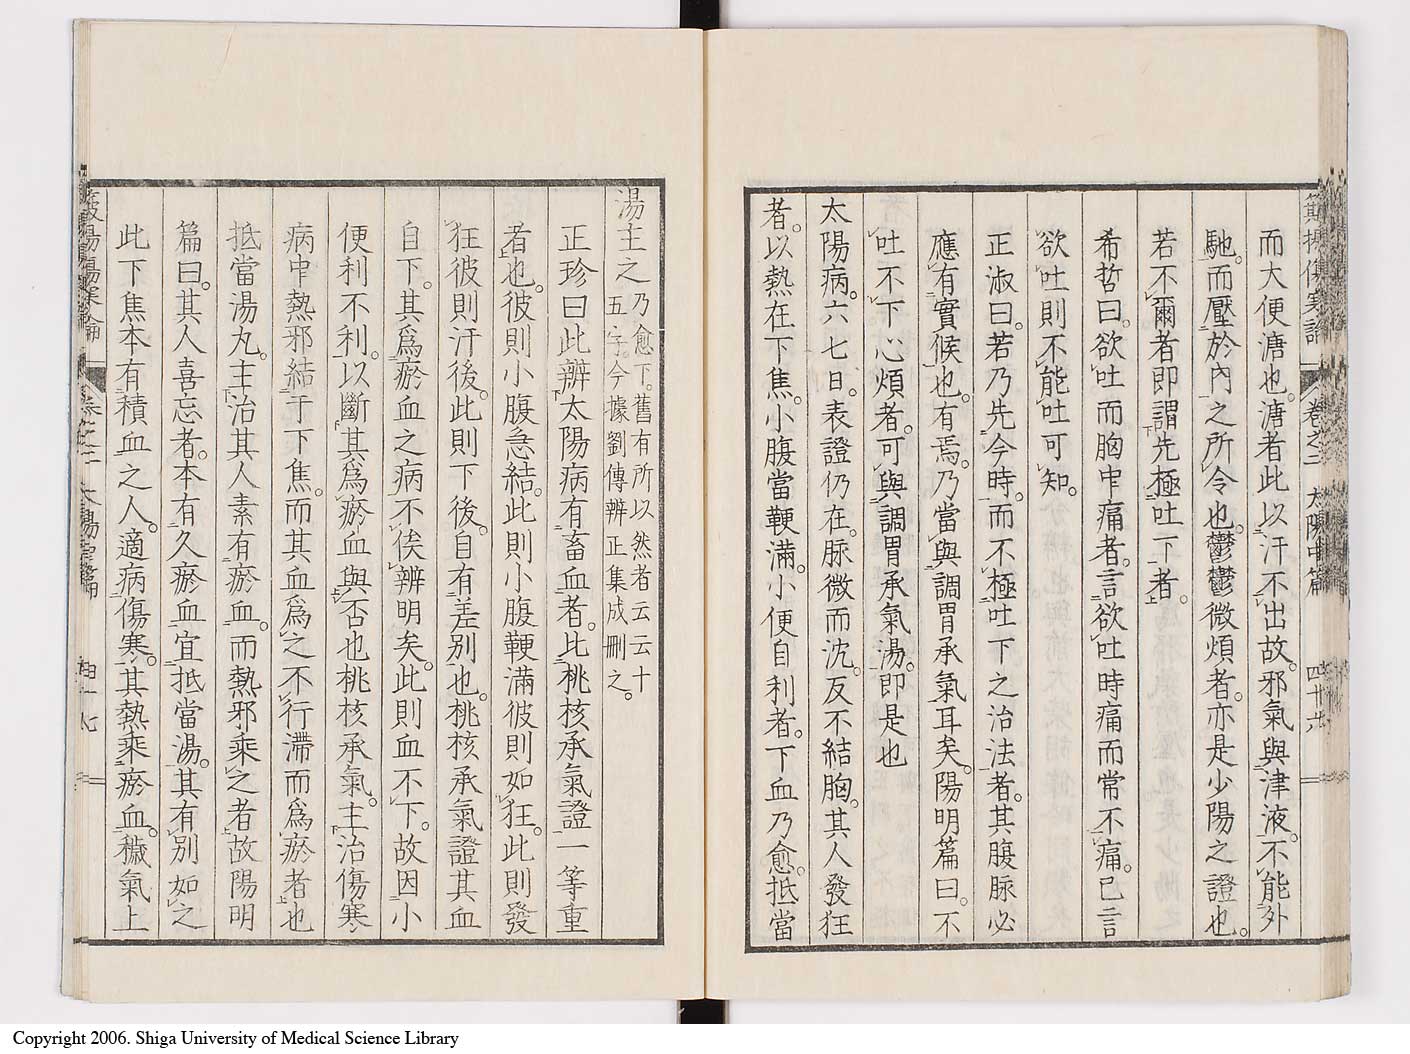 傷寒論 卷之二 太陽中篇
而大便溏也。溏者此以汗不出故。邪氣與津液。不能外
馳。而壓於內之所令也。鬱鬱微煩者。亦是少陽之證也。
若不爾者即謂先極吐下者。
希哲曰。欲吐而胸中痛者。言欲吐時痛而常不痛。已言
欲吐則不能吐可知。
正淑曰。若乃先今時。而不極吐下之治法者。其腹脈必
應有實候也。有焉。乃當與調胃承氣耳矣。陽明篇曰。不
吐不下心煩者。可與調胃承氣湯。即是也
太陽病。六七日。表證仍在。脈微而沈。反不結胸。其人發狂
者。以熱在下焦。小腹當鞕滿。小便自利者。下血乃愈。抵當
湯主之乃愈下。舊有所以然者云云十
五字。今據劉傳辨正集成刪之。
正珍曰此辨太陽病有畜血者。比桃核承氣證一等重
者也。彼則小腹急結。此則小腹鞕滿彼則如狂。此則發
狂彼則汗後。此則下後。自有差別也。桃核承氣證其血
自下。其爲瘀血之病不俟辨明矣。此則血不下。故因小
便利不利。以斷其爲瘀血與否也桃核承氣。主治傷寒
病中熱邪結于下焦。而其血爲之不行滯而爲瘀者也
抵當湯丸。主治其人素有瘀血。而熱邪乘之者故陽明
篇曰。其人喜忘者。本有久瘀血宜抵當湯。其有別如之
此下焦本有積血之人。適病傷寒。其熱乘瘀血。穢氣上
傷寒論 卷之二 太陽中篇
Copyright 2006. Shiga University of Medical Science Library